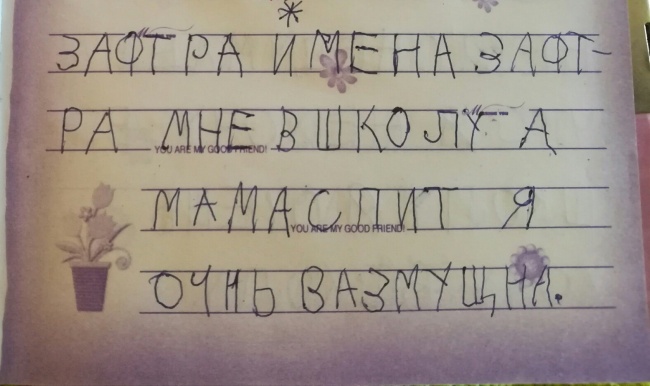 ЗАФТРА ИМЕНА ЗАФТ-
РА МНЕ В ШКОЛУ А
YOU ARE MY GOOD FRIEND!
МАМА СПИТ Я
YOU ARE MY GOOD FRIEND!
ОЧНЬ ВАЗМУЩНА.